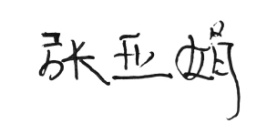 张亚娟